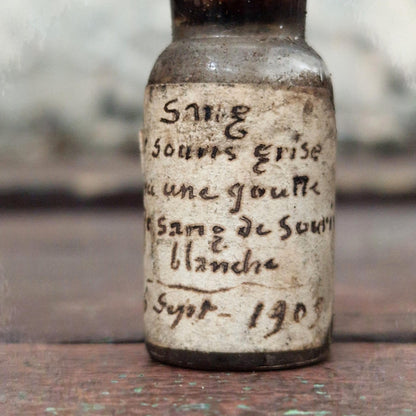 Sang
souris grise
une goutte
sang de Souri
blanche
Sept - 1909